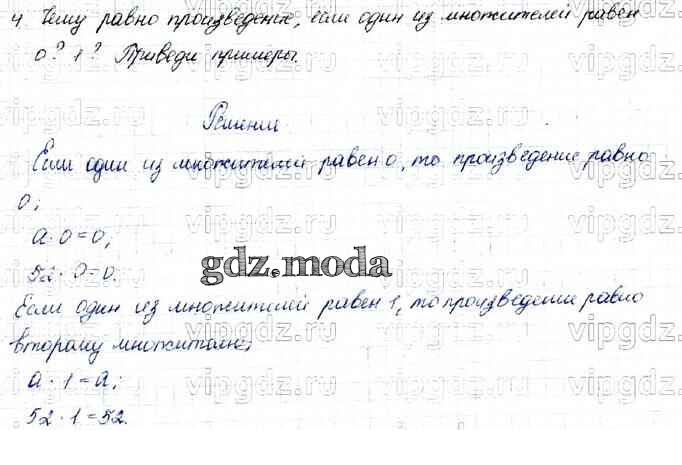 4. Чему равно произведение, если один из множителей равен
0? 1? Приведи примеры.
Решение
Если один из множителей равен 0, то произведение равно
0;
a · 0 = 0;
52 · 0 = 0.
gdz.moda
Если один из множителей равен 1, то произведение равно
второму множителю;
a · 1 = a;
52 · 1 = 52.
vipgdz.ru